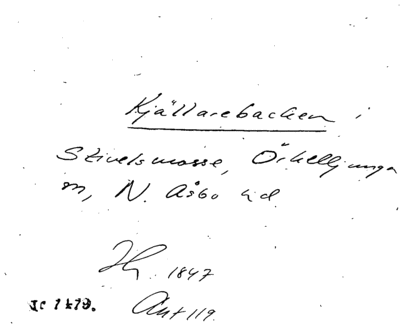 Kjällarebacken i
Stivelsmosse, Örkelljunga
sn, N. Åsbo hd
1847
Ant 119.